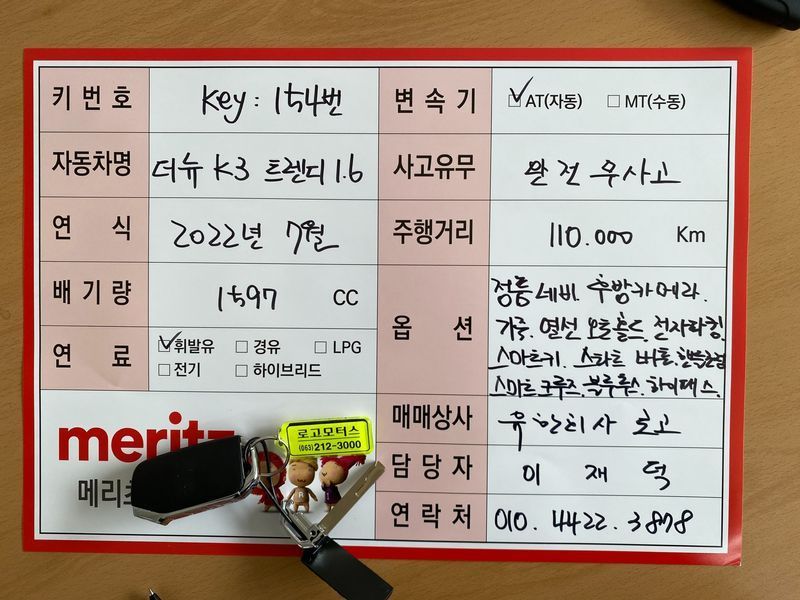 키 번 호 Key : 154번
변 속 기 ☑ AT(자동) ☐ MT(수동)
자동차명 더뉴 K3 트렌디 1.6
사고유무 완 전 무 사고
연 식 2022년 7월
주행거리 110.000 Km
배 기 량 1597 CC
옵 션
정품 네비. 후방카메라.
가죽. 열선 오토홀드. 전자파킹
스마트키. 스타트 버튼.
스마트 크루즈. 블루투스. 하이패스.
연 료 ☑ 휘발유 ☐ 경유 ☐ LPG
☐ 전기 ☐ 하이브리드
매매상사 유한회사 로고
담 당 자 이 재 덕
연 락 처 010. 4422. 3878
meritz
메리츠
로고모터스
(063)212-3000